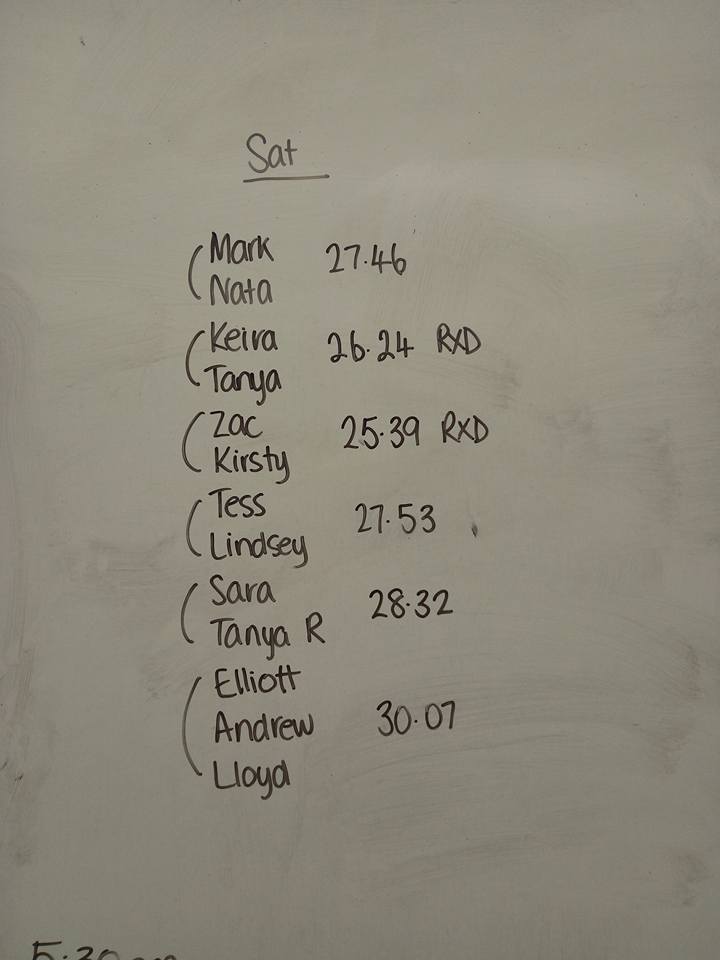 Sat
Mark
27.46
Nata
Keira
26.24 RXD
Tanya
Zac
25.39 RXD
Kirsty
Tess
27.53
Lindsey
Sara
28.32
Tanya R
Elliott
Andrew 30.07
Lloyd